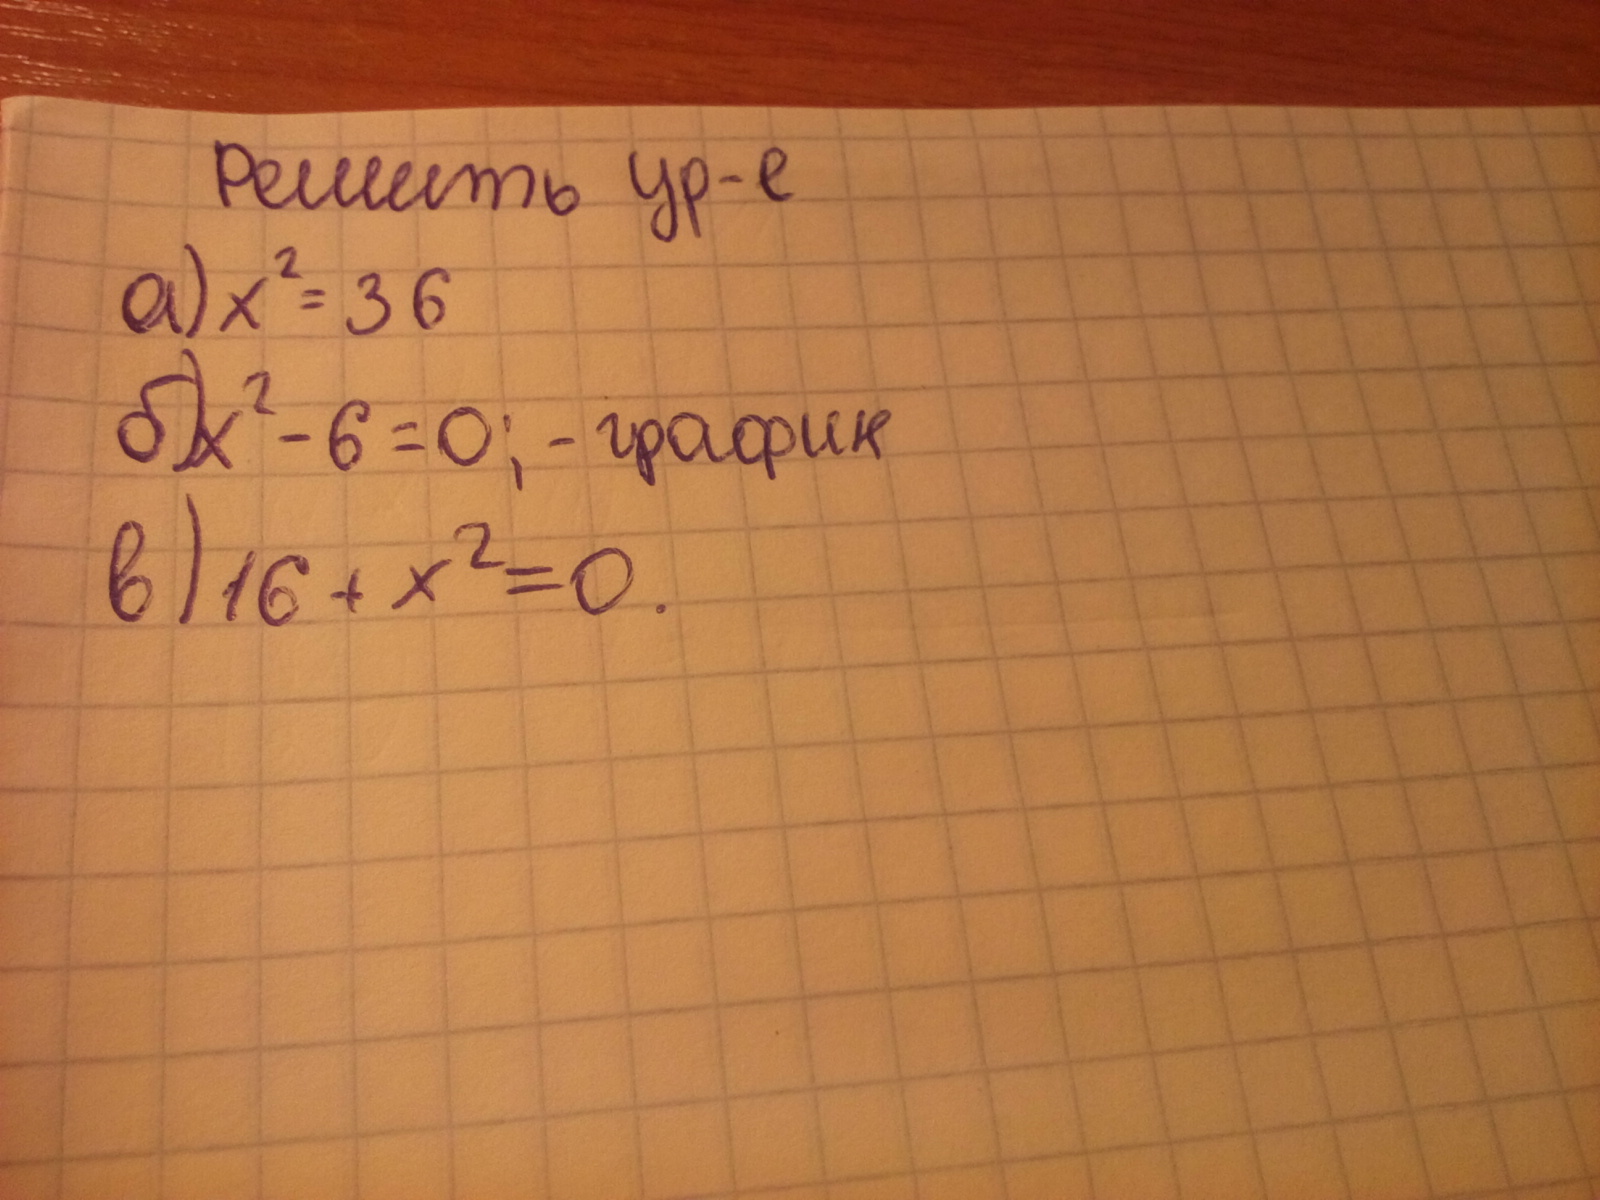 Решить ур-е
а) x² = 36
б) x² - 6 = 0; - график
в) 16 + x² = 0.